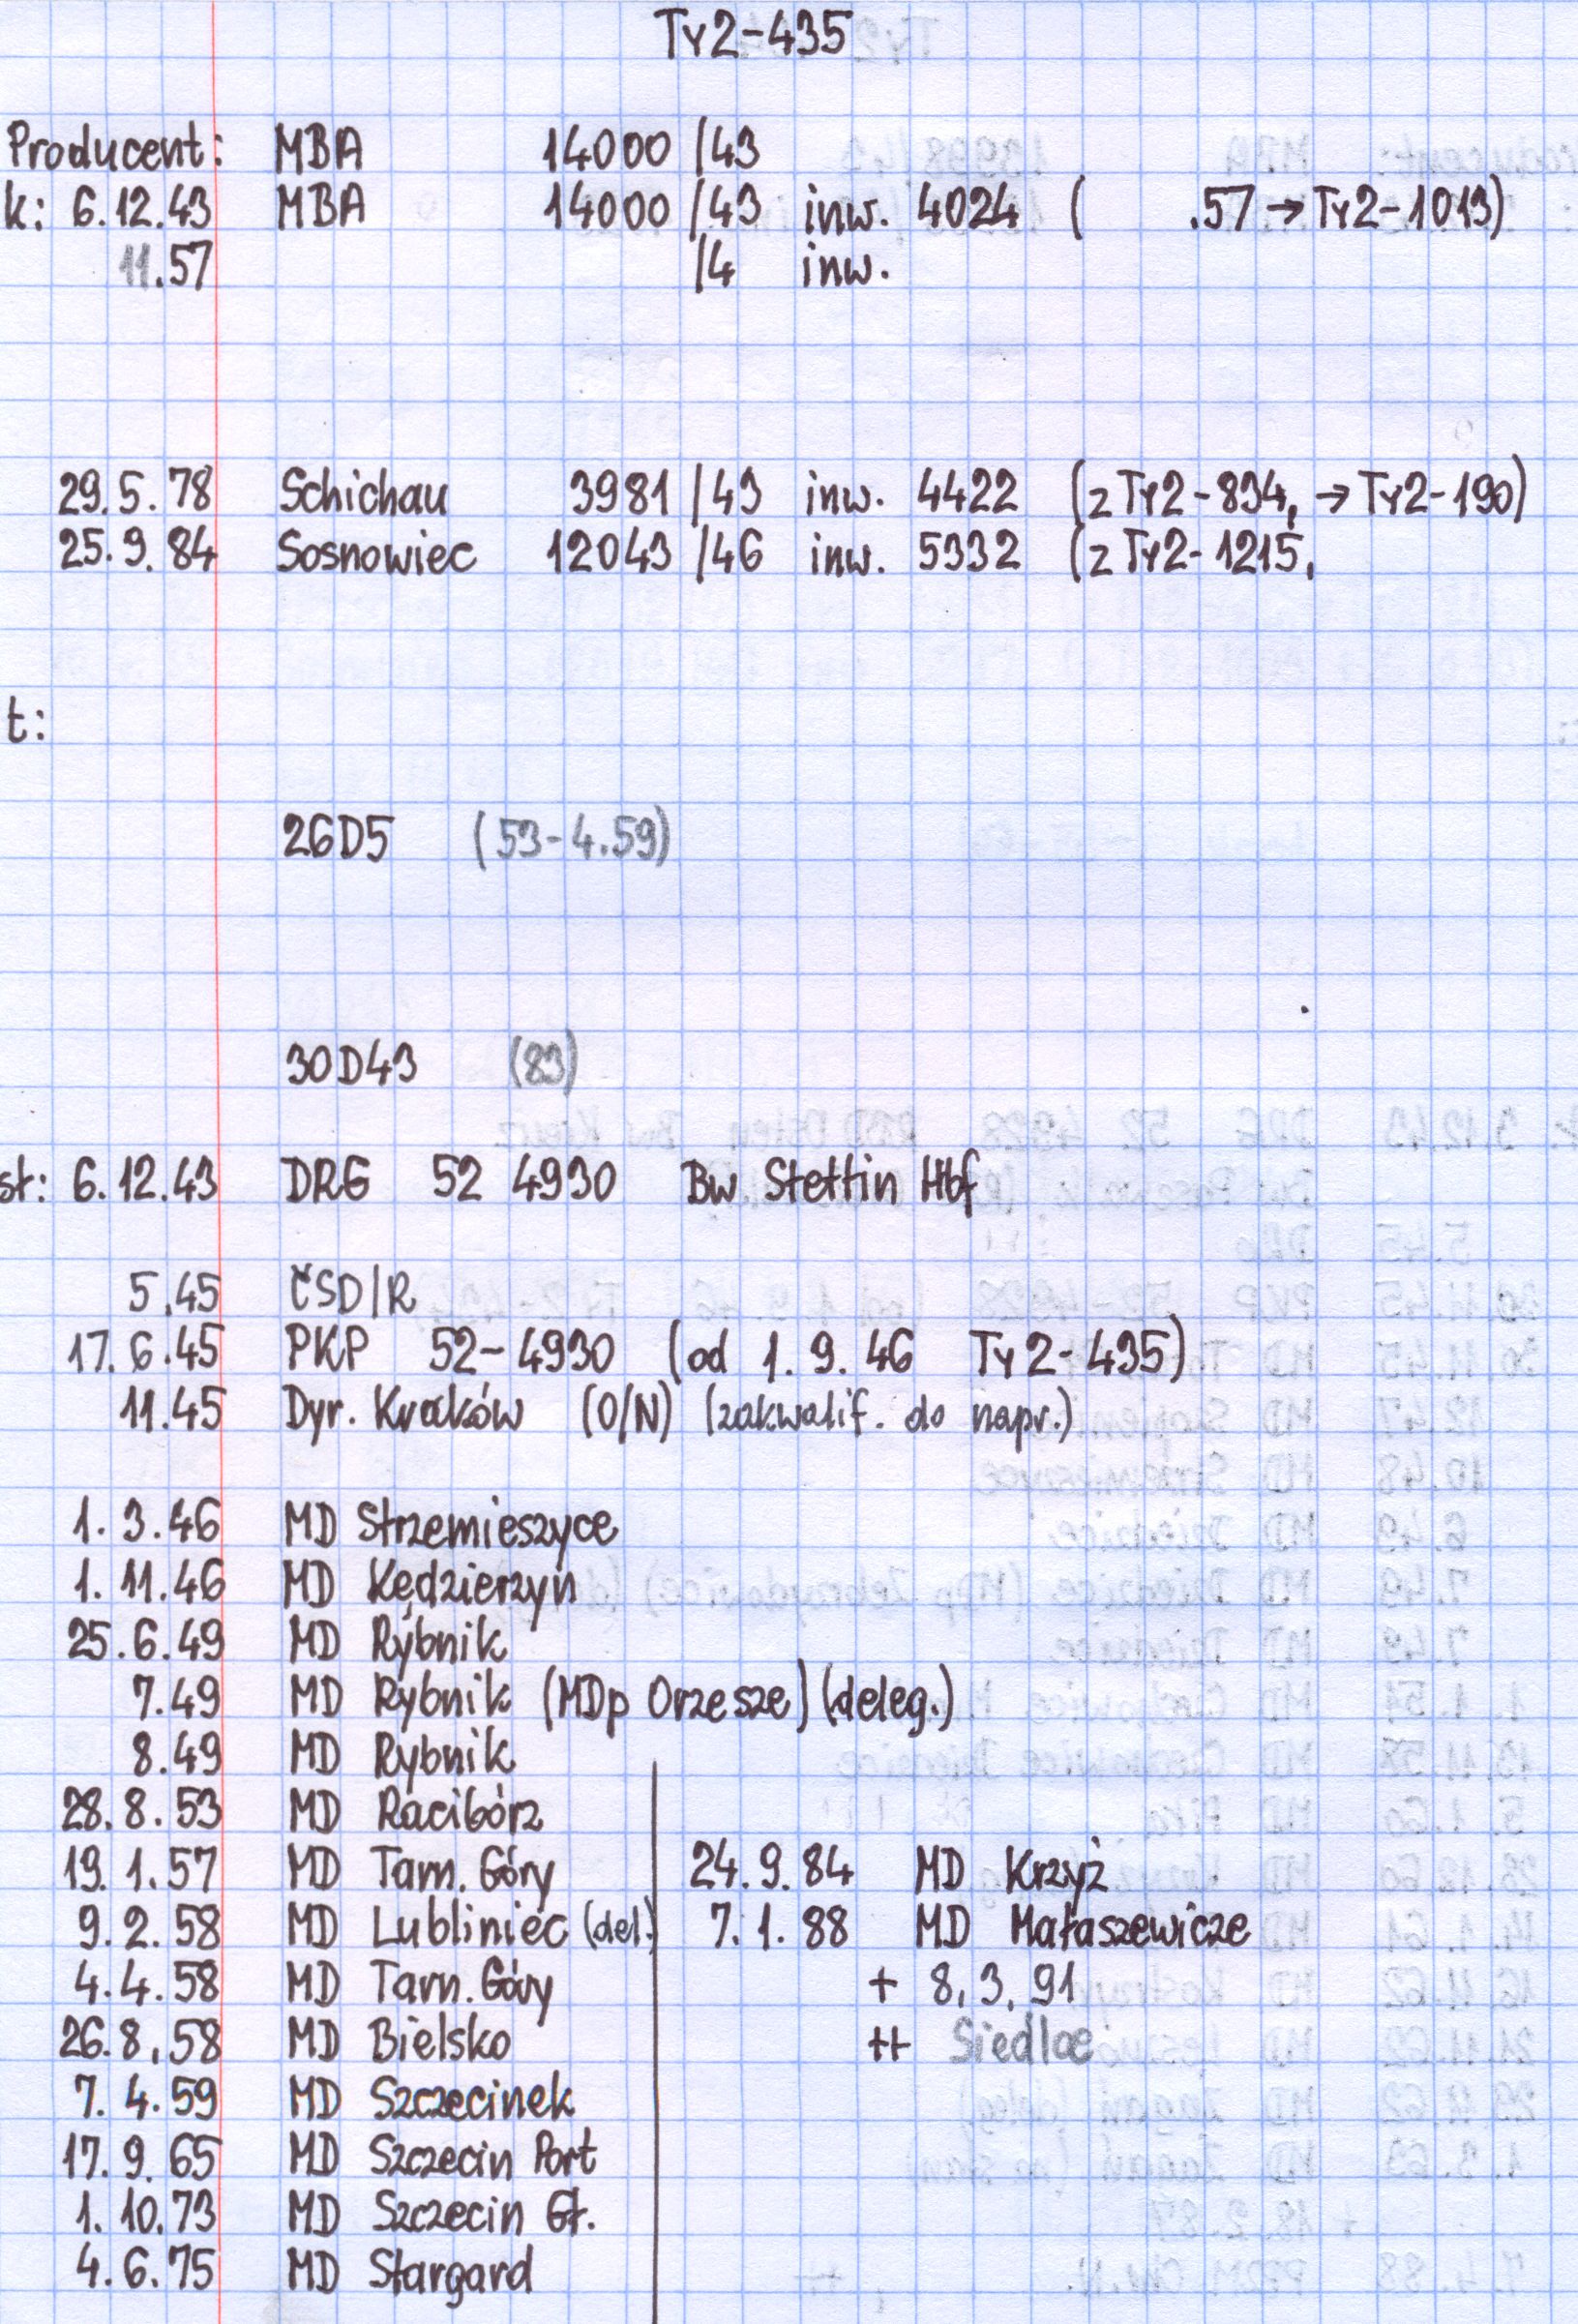 Ty2-435
Producent: MBA 14000 /43
k: 6.12.43 MBA 14000 /43 inw. 4024 ( .57 → Ty2-1013)
11.57 /4 inw.
29.5.78 Schichau 3981 /43 inw. 4422 (z Ty2-834, → Ty2-190)
25.9.84 Sosnowiec 12043 /46 inw. 5332 (z Ty2-1215,
t:
26D5 (53-4.59)
30D43 (83)
st: 6.12.43 DRG 52 4930 Bw Stettin Hbf
5.45 ČSD/R
17.6.45 PKP 52-4930 (od 1.9.46 Ty2-435)
11.45 Dyr. Kraków (O/N) (zakwalif. do napr.)
1.3.46 MD Strzemieszyce
1.11.46 MD Kędzierzyn
25.6.49 MD Rybnik
7.49 MD Rybnik (MDp Orzesze) (deleg.)
8.49 MD Rybnik
28.8.53 MD Racibórz
19.1.57 MD Tarn. Góry
9.2.58 MD Lubliniec (del.)
4.4.58 MD Tarn. Góry
26.8.58 MD Bielsko
7.4.59 MD Szczecinek
17.9.65 MD Szczecin Port
1.10.73 MD Szczecin Gł.
4.6.75 MD Stargard
24.9.84 MD Krzyż
7.1.88 MD Małaszewicze
+ 8.3.91
++ Siedlce